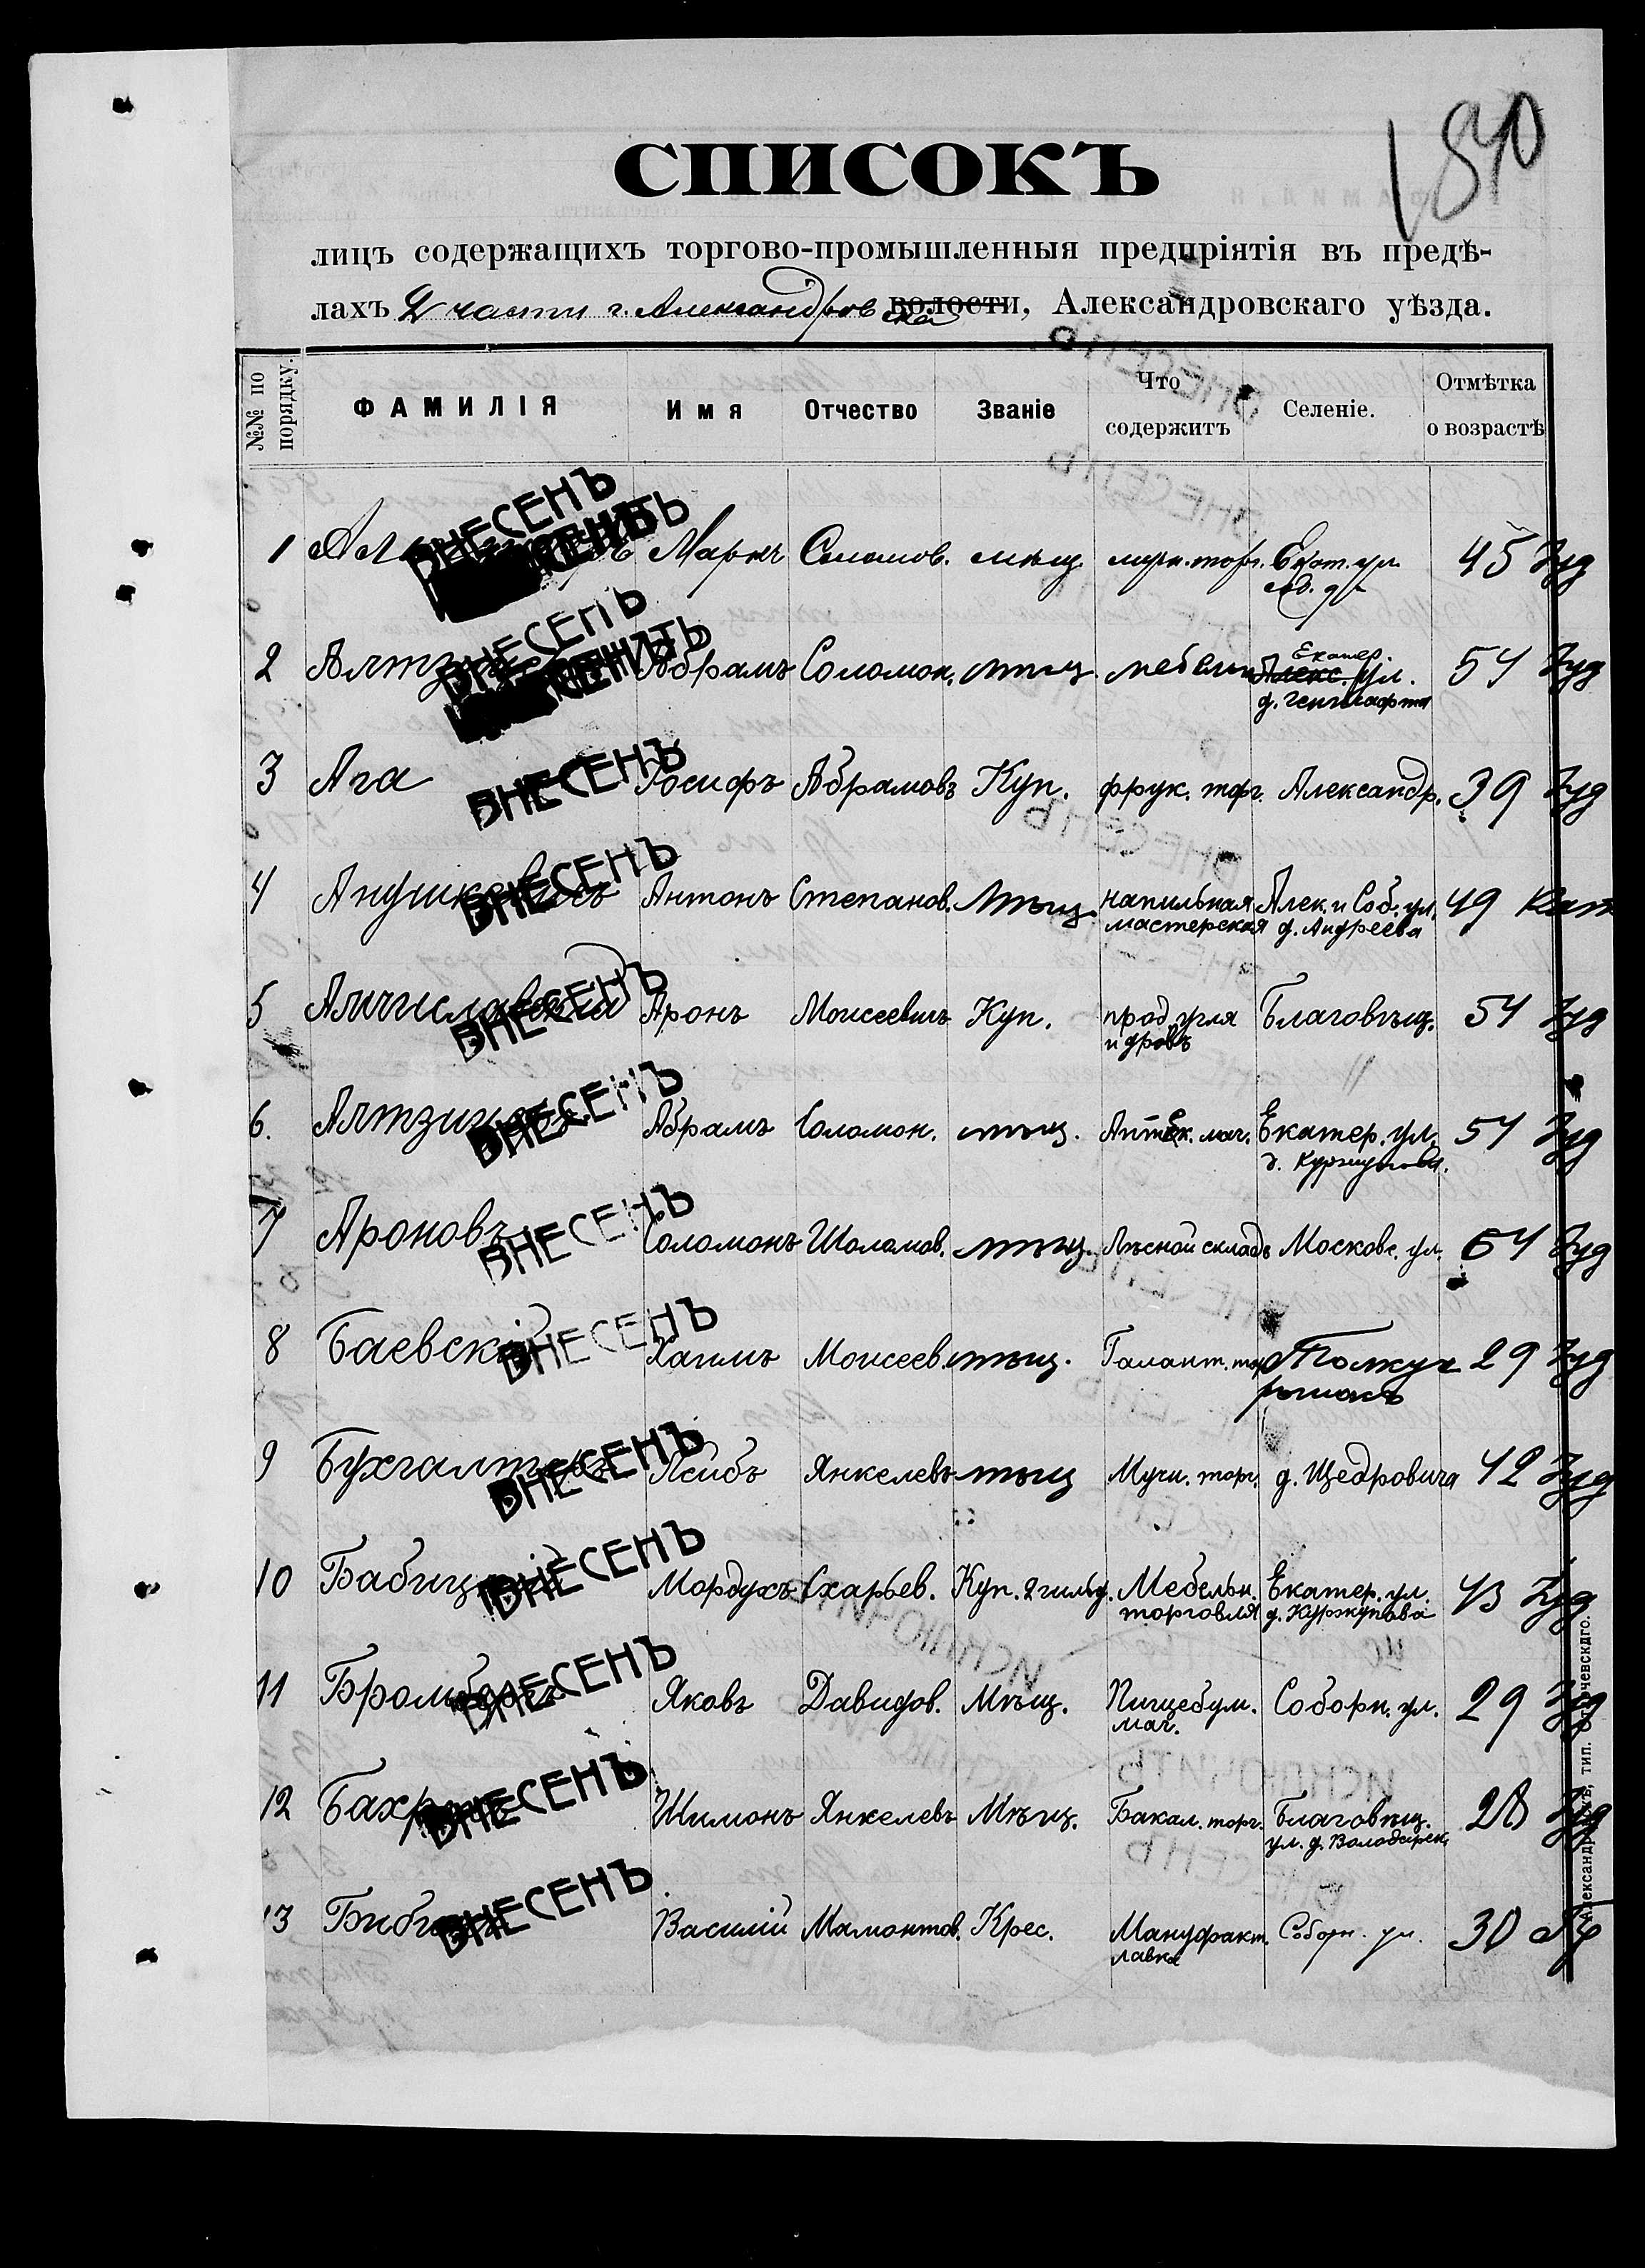 СПИСОКЪ
лицъ содержащихъ торгово-промышленныя предпріятія въ предѣ-
лахъ 2 части г. Александровска волости, Александровскаго уѣзда.
№№ по порядку. ФАМИЛІЯ Имя Отчество Званіе Что содержитъ Селеніе. Отмѣтка о возрастѣ
ВНЕСЕНЪ
1 Маркъ Соломов. мѣщ. мучн. торг. Екат. ул. 45 Іуд
ВНЕСЕНЪ
2 Абрамъ Соломон. мѣщ. мебельн Екатер. Алекс. ул. 54 Іуд
3 Ага ВНЕСЕНЪ Іосифъ Абрамовъ Куп. фрук. торг. Александр. 39 Іуд
4 Анушкевичъ ВНЕСЕНЪ Антонъ Степанов. Мѣщ. напильная Алек. и Соб. ул. 49 Кат
мастерская д. Андреева
5 ВНЕСЕНЪ Аронъ Моисеевичъ Куп. прод. угля Благовѣщ. 54 Іуд
и дровъ
6. ВНЕСЕНЪ Абрамъ Соломон. мѣщ. Аптек. маг. Екатер. ул. 54 Іуд
7 Ароновъ ВНЕСЕНЪ Соломонъ Шоломов. мѣщ. Лѣсной складъ Московс. ул. 64 Іуд
8 Баевскій ВНЕСЕНЪ Хаимъ Моисеев. мѣщ. Галант. тор Толкуч 29 Іуд
рынокъ
9 Бухгалтеръ ВНЕСЕНЪ Лейбъ Янкелевъ мѣщ Мучн. торг. д. Щедровича 42 Іуд
10 Бабицкій ВНЕСЕНЪ Мордухъ Схарьев. Куп. 2 гильд. Мебельн. Екатер. ул. 43 Іуд
торговля д. Куржупова
11 Бромбергъ ВНЕСЕНЪ Яковъ Давидов. Мѣщ. Писчебум. Соборн. ул. 29 Іуд
маг.
12 ВНЕСЕНЪ Шимонъ Янкелевъ Мѣщ. Бакал. торг. Благовѣщ. 28 Іуд
ул. д.
13 ВНЕСЕНЪ Василій Мамонтов. Крес. Мануфакт. Соборн. ул. 30
лавка